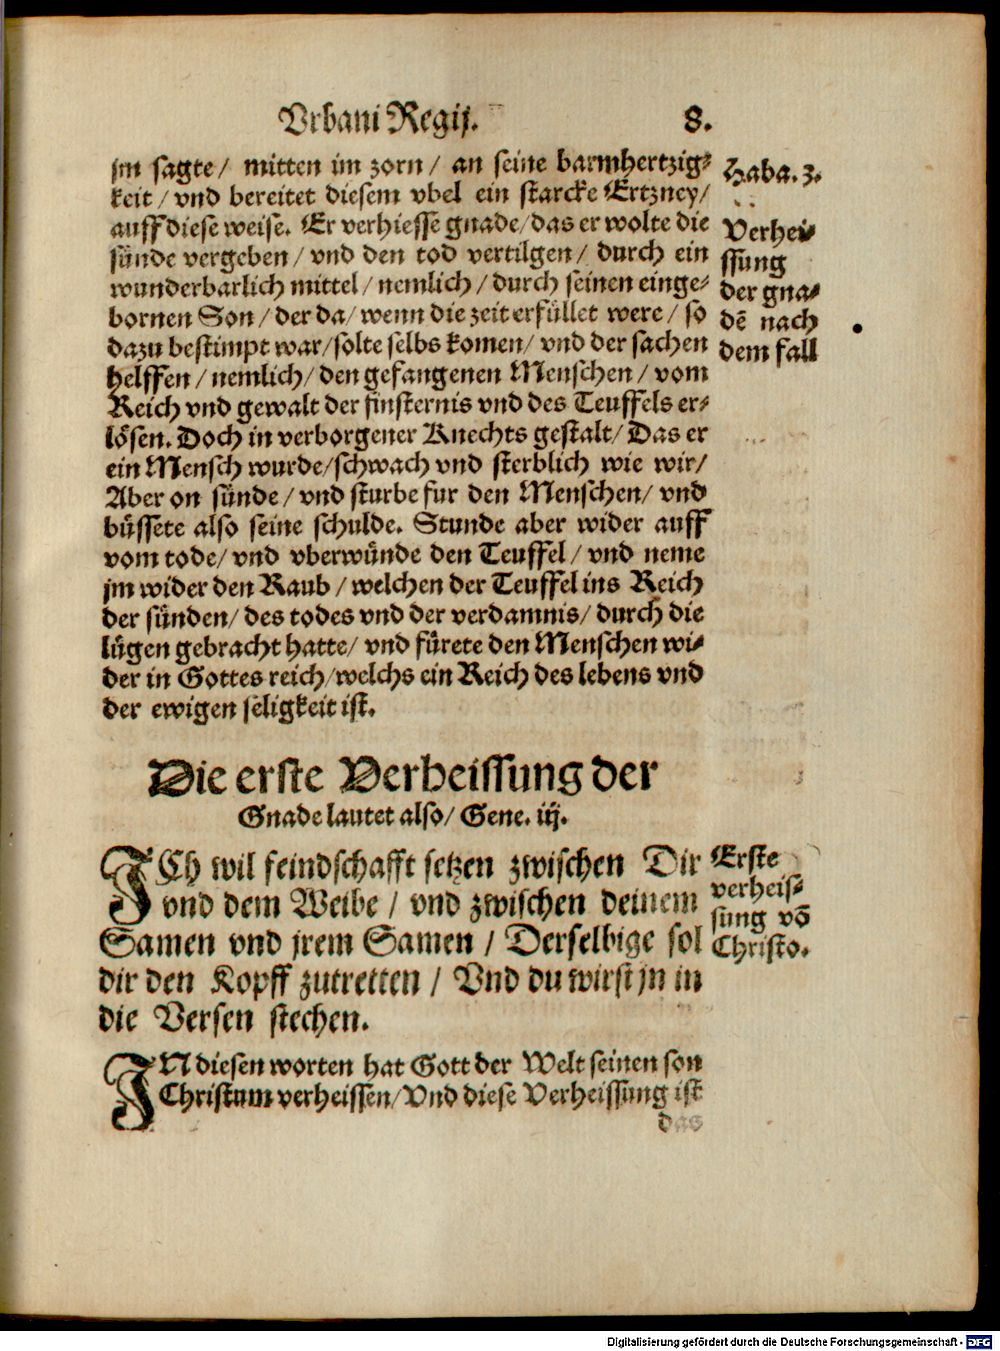 Vrbani Regij. 8.
jm sagte/ mitten im zorn/ an seine barmhertzig-
keit/ vnd bereitet diesem vbel ein starcke Ertzney/
auff diese weise. Er verhiesse gnade/ das er wolte die
sünde vergeben/ vnd den tod vertilgen/ durch ein
wunderbarlich mittel/ nemlich/ durch seinen einge-
bornen Son/ der da/ wenn die zeit erfüllet were/ so
dazu bestimpt war/ solte selbs komen/ vnd der sachen
helffen/ nemlich/ den gefangenen Menschen/ vom
Reich vnd gewalt der finsternis vnd des Teuffels er-
lösen. Doch in verborgener Knechts gestalt/ Das er
ein Mensch wurde/ schwach vnd sterblich wie wir/
Aber on sünde/ vnd sturbe fur den Menschen/ vnd
büssete also seine schulde. Stunde aber wider auff
vom tode/ vnd vberwünde den Teuffel/ vnd neme
jm wider den Raub/ welchen der Teuffel ins Reich
der sünden/ des todes vnd der verdamnis/ durch die
lügen gebracht hatte/ vnd fürete den Menschen wi-
der in Gottes reich/ welchs ein Reich des lebens vnd
der ewigen seligkeit ist.
Haba. 3.
Verhei-
ssung
der gna-
dē nach
dem fall
Die erste Verheissung der
Gnade lautet also/ Gene. iij.
ICh wil feindschafft setzen zwischen Dir
vnd dem Weibe/ vnd zwischen deinem
Samen vnd jrem Samen/ Derselbige sol
dir den Kopff zutretten/ Vnd du wirst jn in
die Versen stechen.
Erste
verheis-
sung vō
Christo.
IN diesen worten hat Gott der Welt seinen son
Christum verheissen/ Vnd diese Verheissung ist
das
Digitalisierung gefördert durch die Deutsche Forschungsgemeinschaft - DFG